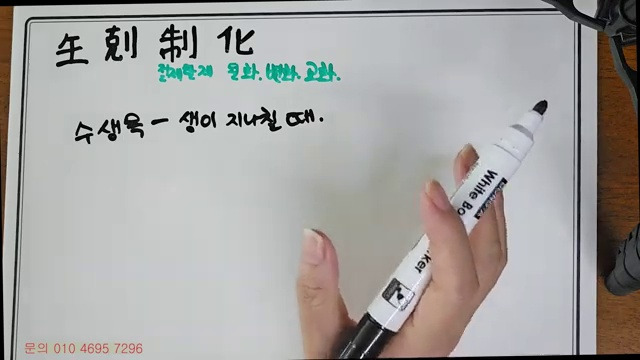 生 剋 制 化
문화. 변화. 교화.
수생목 - 생이 지나칠 때.
White Bo
rker
문의 010 4695 7296